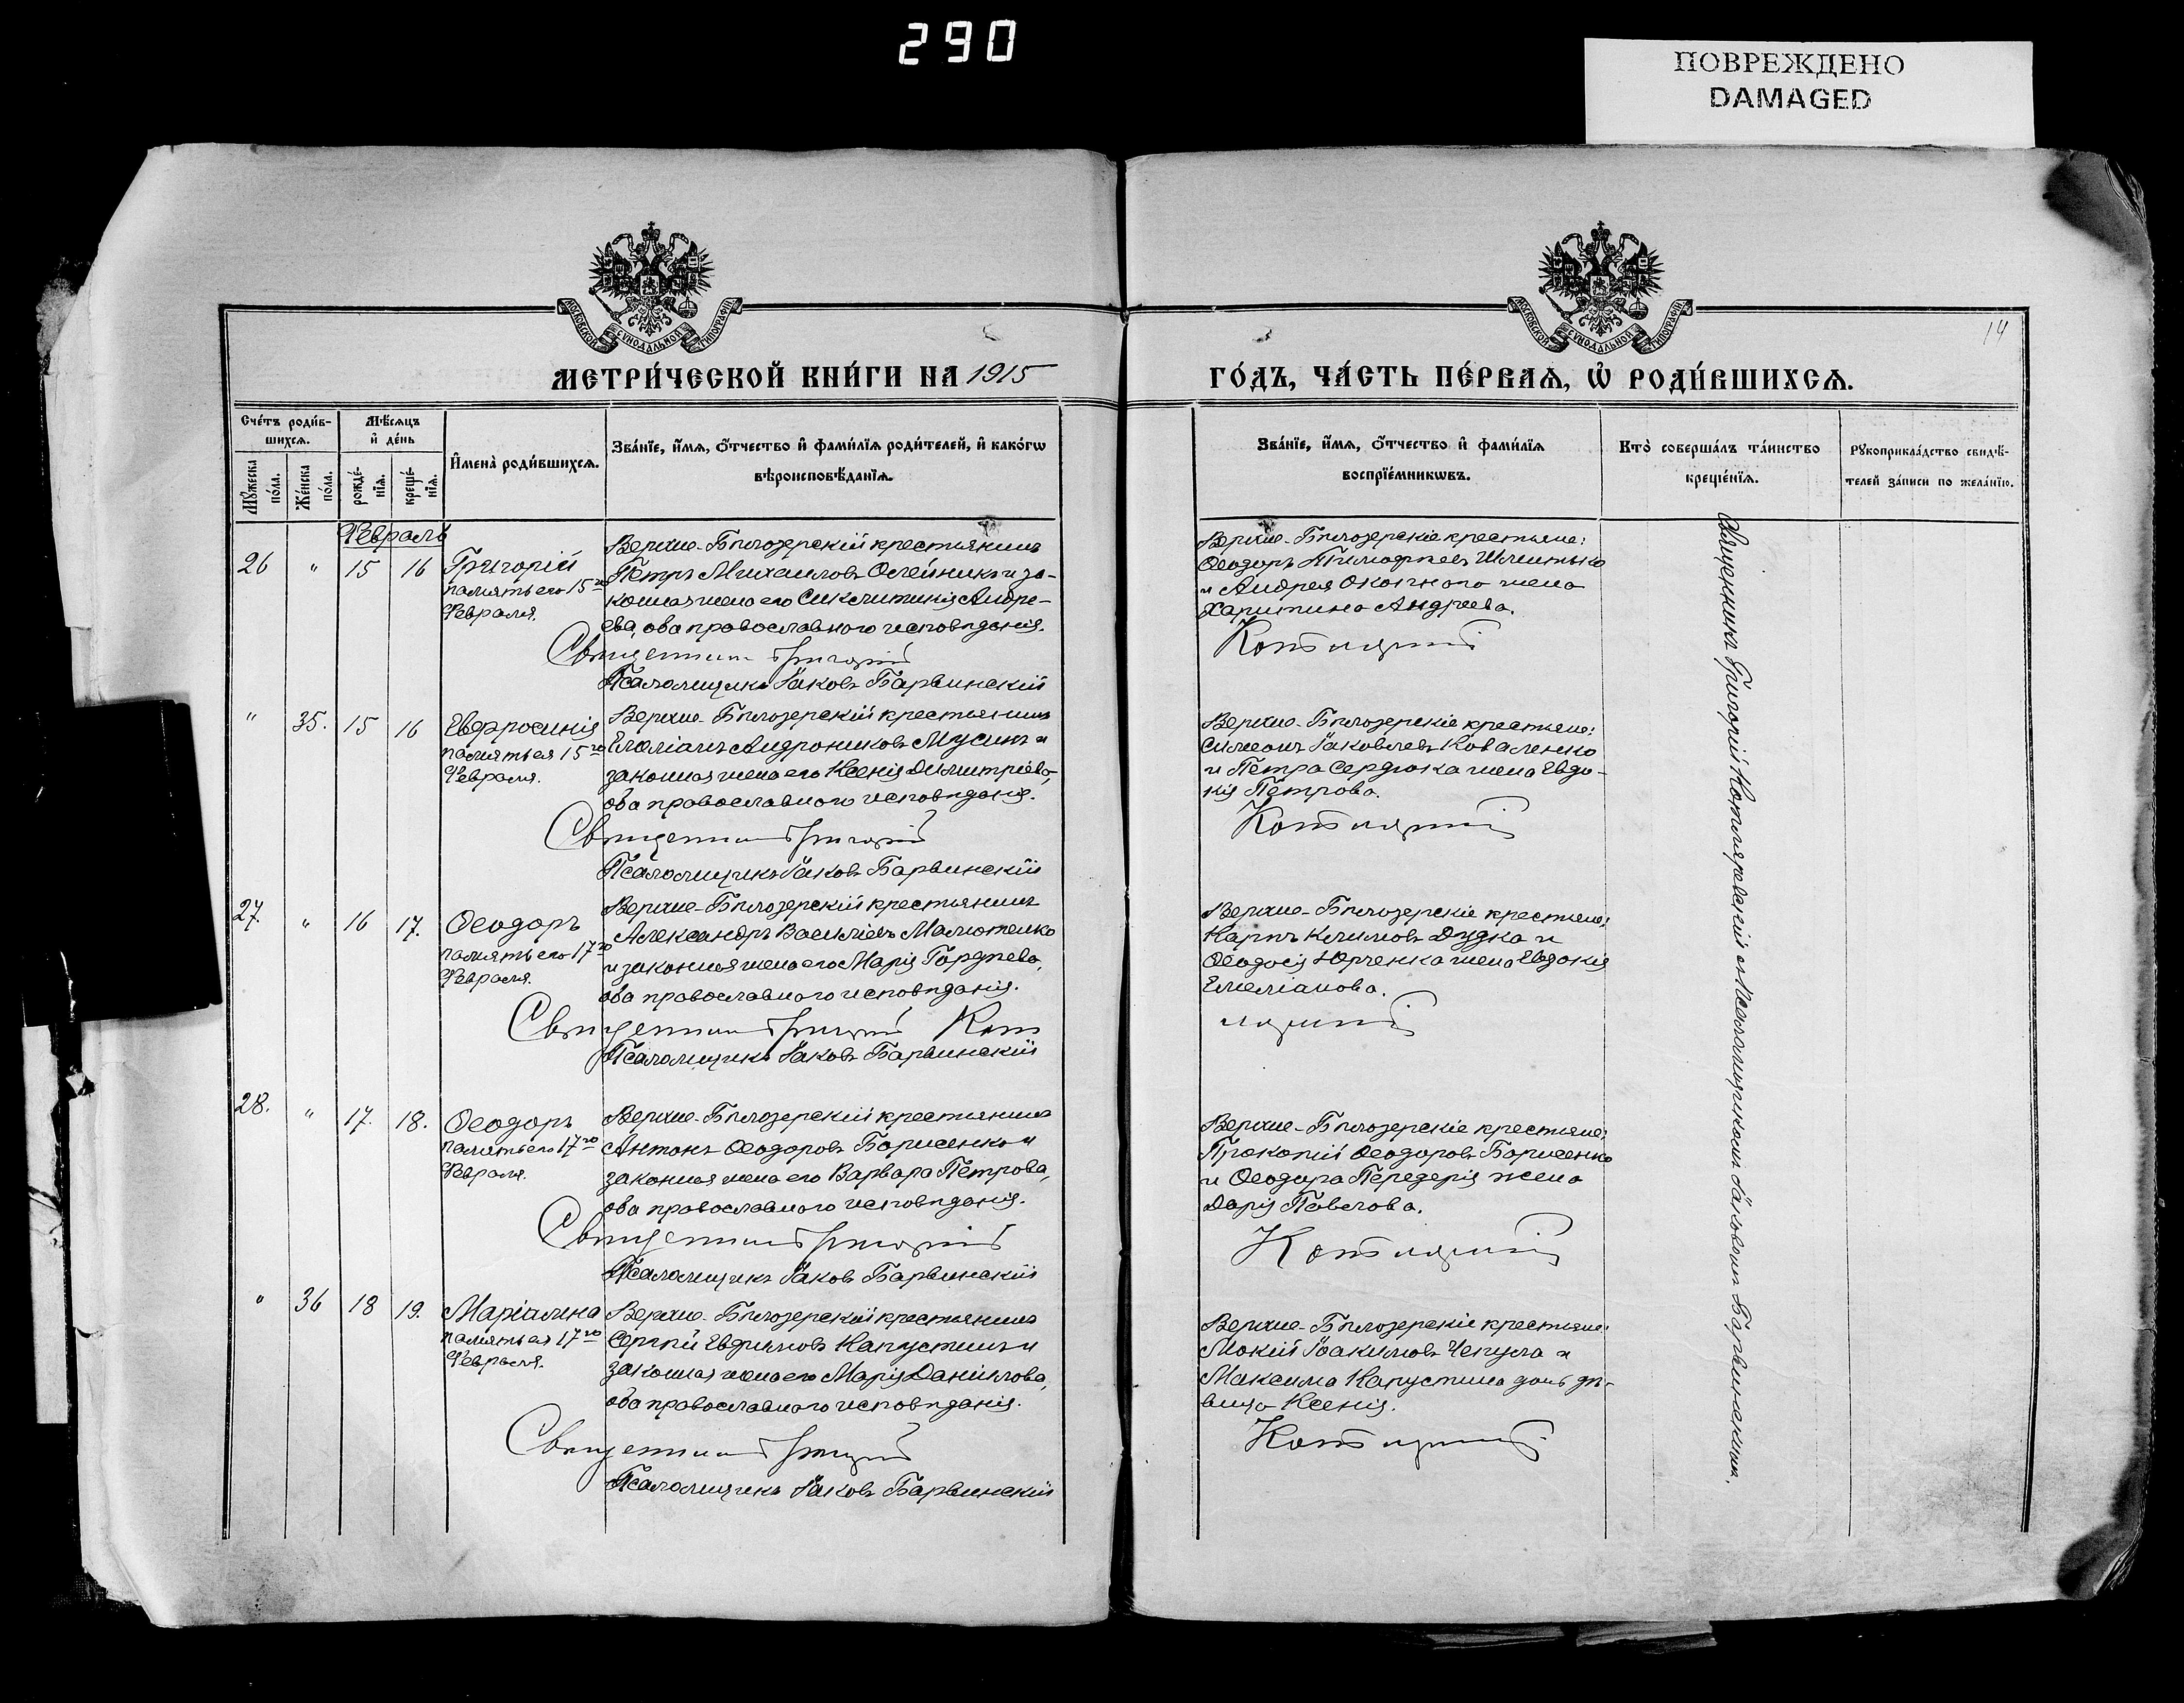 290
ПОВРЕЖДЕНО
DAMAGED
МОСКОВСКОЙ СѴНОДАЛЬНОЙ ТИПОГРАФІИ
МОСКОВСКОЙ СѴНОДАЛЬНОЙ ТИПОГРАФІИ
14
МЕТРИ́ЧЕСКОЙ КНИ́ГИ НА 1915
ГО́ДЪ, ЧА́СТЬ ПЕ́РВАѦ, Ѡ҆ РОДИ́ВШИХСѦ.
Сче́тъ роди́в-
шихсѧ.
Мѣ́сѧцъ
и҆ де́нь
Мꙋ́жеска
по́ла.
Же́нска
по́ла.
рожде́-
нїѧ.
креще́-
нїѧ.
И҆мена̀ роди́вшихсѧ.
Зва́нїе, и҆́мѧ, ѻ҆́тчество и҆ фами́лїѧ роди́телей, и҆ како́гѡ
вѣроисповѣ́данїѧ.
Зва́нїе, и҆́мѧ, ѻ҆́тчество и҆ фами́лїѧ
воспрїе́мникѡвъ.
Кто̀ соверша́лъ та́инство
креще́нїѧ.
Рꙋкоприкла́дство свидѣ́-
телей за́писи по жела́нїю.
Февраль
26 " 15 16 Григорій
память его 15го
Февраля.
Верхне-Бѣлозерскій крестьянинъ
Петръ Михаиловъ Олейникъ и за-
конная жена его Сигклитикія Андре-
ева, оба православнаго исповѣданія.
Священникъ Григорій
Псаломщикъ Іаковъ Барвинскій
Верхне-Бѣлозерскіе крестьяне:
Ѳеодоръ Тимофеевъ
и Андрея жена
Харитина Андреева.
" 35. 15 16 Евфросинія
память ея 15го
Февраля.
Верхне-Бѣлозерскій крестьянинъ
Емеліанъ Андрониковъ Мусинъ и
законная жена его Ксенія Димитріева,
оба православнаго исповѣданія.
Священникъ Григорій
Псаломщикъ Іаковъ Барвинскій
Верхне-Бѣлозерскіе крестьяне:
Симеонъ Іаковлевъ Коваленко
и Петра Сердюка жена Евдо-
кія Петрова.
27. " 16 17. Ѳеодоръ
память его 17го
Февраля.
Верхне-Бѣлозерскій крестьянинъ
Александръ Василіевъ Малютенко
и законная жена его Марія Гордѣева,
оба православнаго исповѣданія.
Священникъ Григорій
Псаломщикъ Іаковъ Барвинскій
Верхне-Бѣлозерскіе крестьяне:
Карпъ Климовъ Дудка и
Ѳеодосія Юрченка жена Евдокія
Емеліанова.
28. " 17. 18. Ѳеодоръ
память его 17го
Февраля.
Верхне-Бѣлозерскій крестьянинъ
Антонъ Ѳеодоровъ Борисенко и
законная жена его Варвара Петрова,
оба православнаго исповѣданія.
Священникъ Григорій
Псаломщикъ Іаковъ Барвинскій
Верхне-Бѣлозерскіе крестьяне:
Прокопій Ѳеодоровъ Борисенко
и Ѳеодора Передерія жена
Дарія Павлова.
" 36 18 19. Маріамна
память ея 17го
Февраля.
Верхне-Бѣлозерскій крестьянинъ
Сергѣй Евфимовъ Капустинъ и
законная жена его Марія Даніилова,
оба православнаго исповѣданія.
Священникъ Григорій
Псаломщикъ Іаковъ Барвинскій
Верхне-Бѣлозерскіе крестьяне:
Мокій Іоакимовъ Чепула и
Максима Капустина дочь дѣ-
вица Ксенія.
Священникъ Григорій Котляревскій съ Псаломщикомъ Іаковомъ Барвинскимъ.